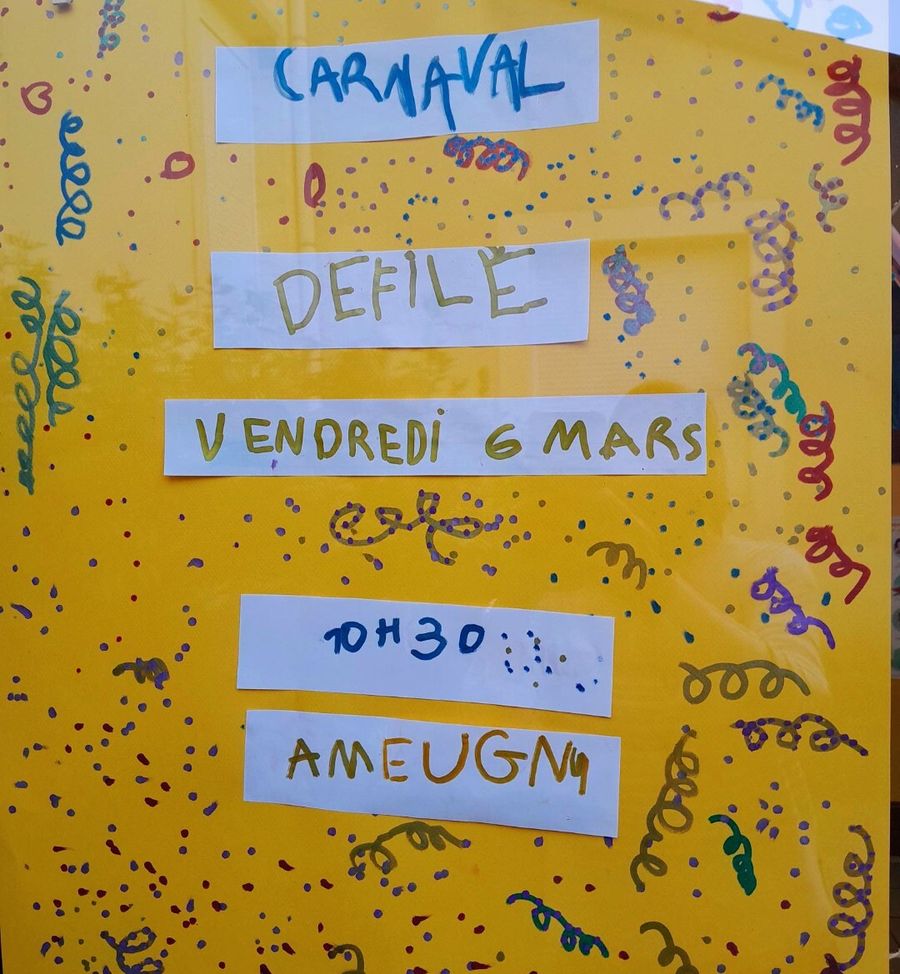 CARNAVAL
DEFILÉ
VENDREDI 6 MARS
10H30
AMEUGNY